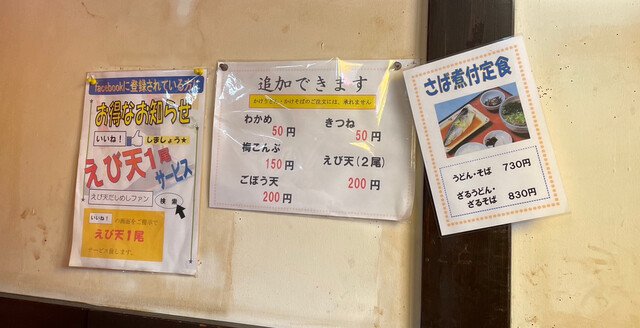 facebookに登録されている方に
お得なお知らせ
いいね!
しましょう★
えび天1尾
サービス
えび天だしめしファン
検索
いいね!の画面をご提示で
えび天1尾
サービス致します。
追加できます
かけうどん・かけそばのご注文には、承れません
わかめ
50円
きつね
50円
梅こんぶ
150円
えび天(2尾)
200円
ごぼう天
200円
さば煮付定食
うどん・そば 730円
ざるうどん・
ざるそば 830円